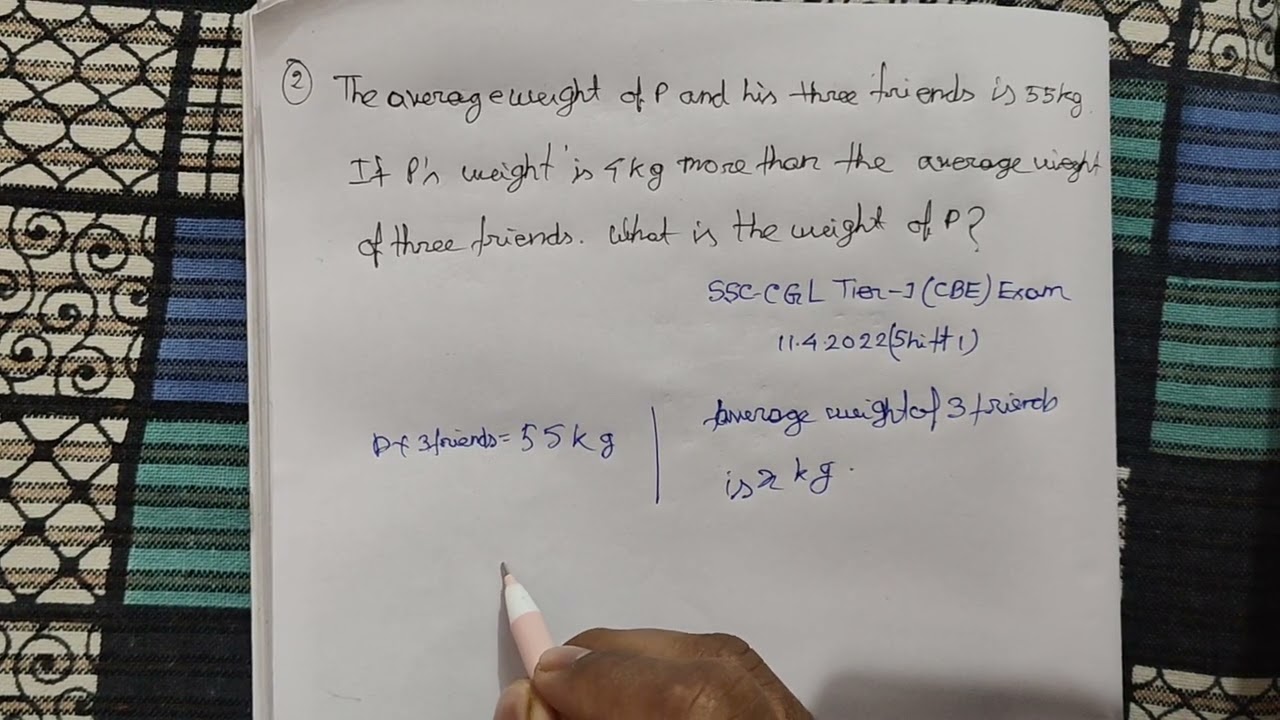 ② The average weight of P and his three friends is 55kg.
If P's weight is 4kg more than the average weight
of three friends. What is the weight of P?
SSC-CGL Tier-I (CBE) Exam
11.4.2022 (Shift 1)
P+ 3friends = 55kg
Average weight of 3 friends
is x kg.